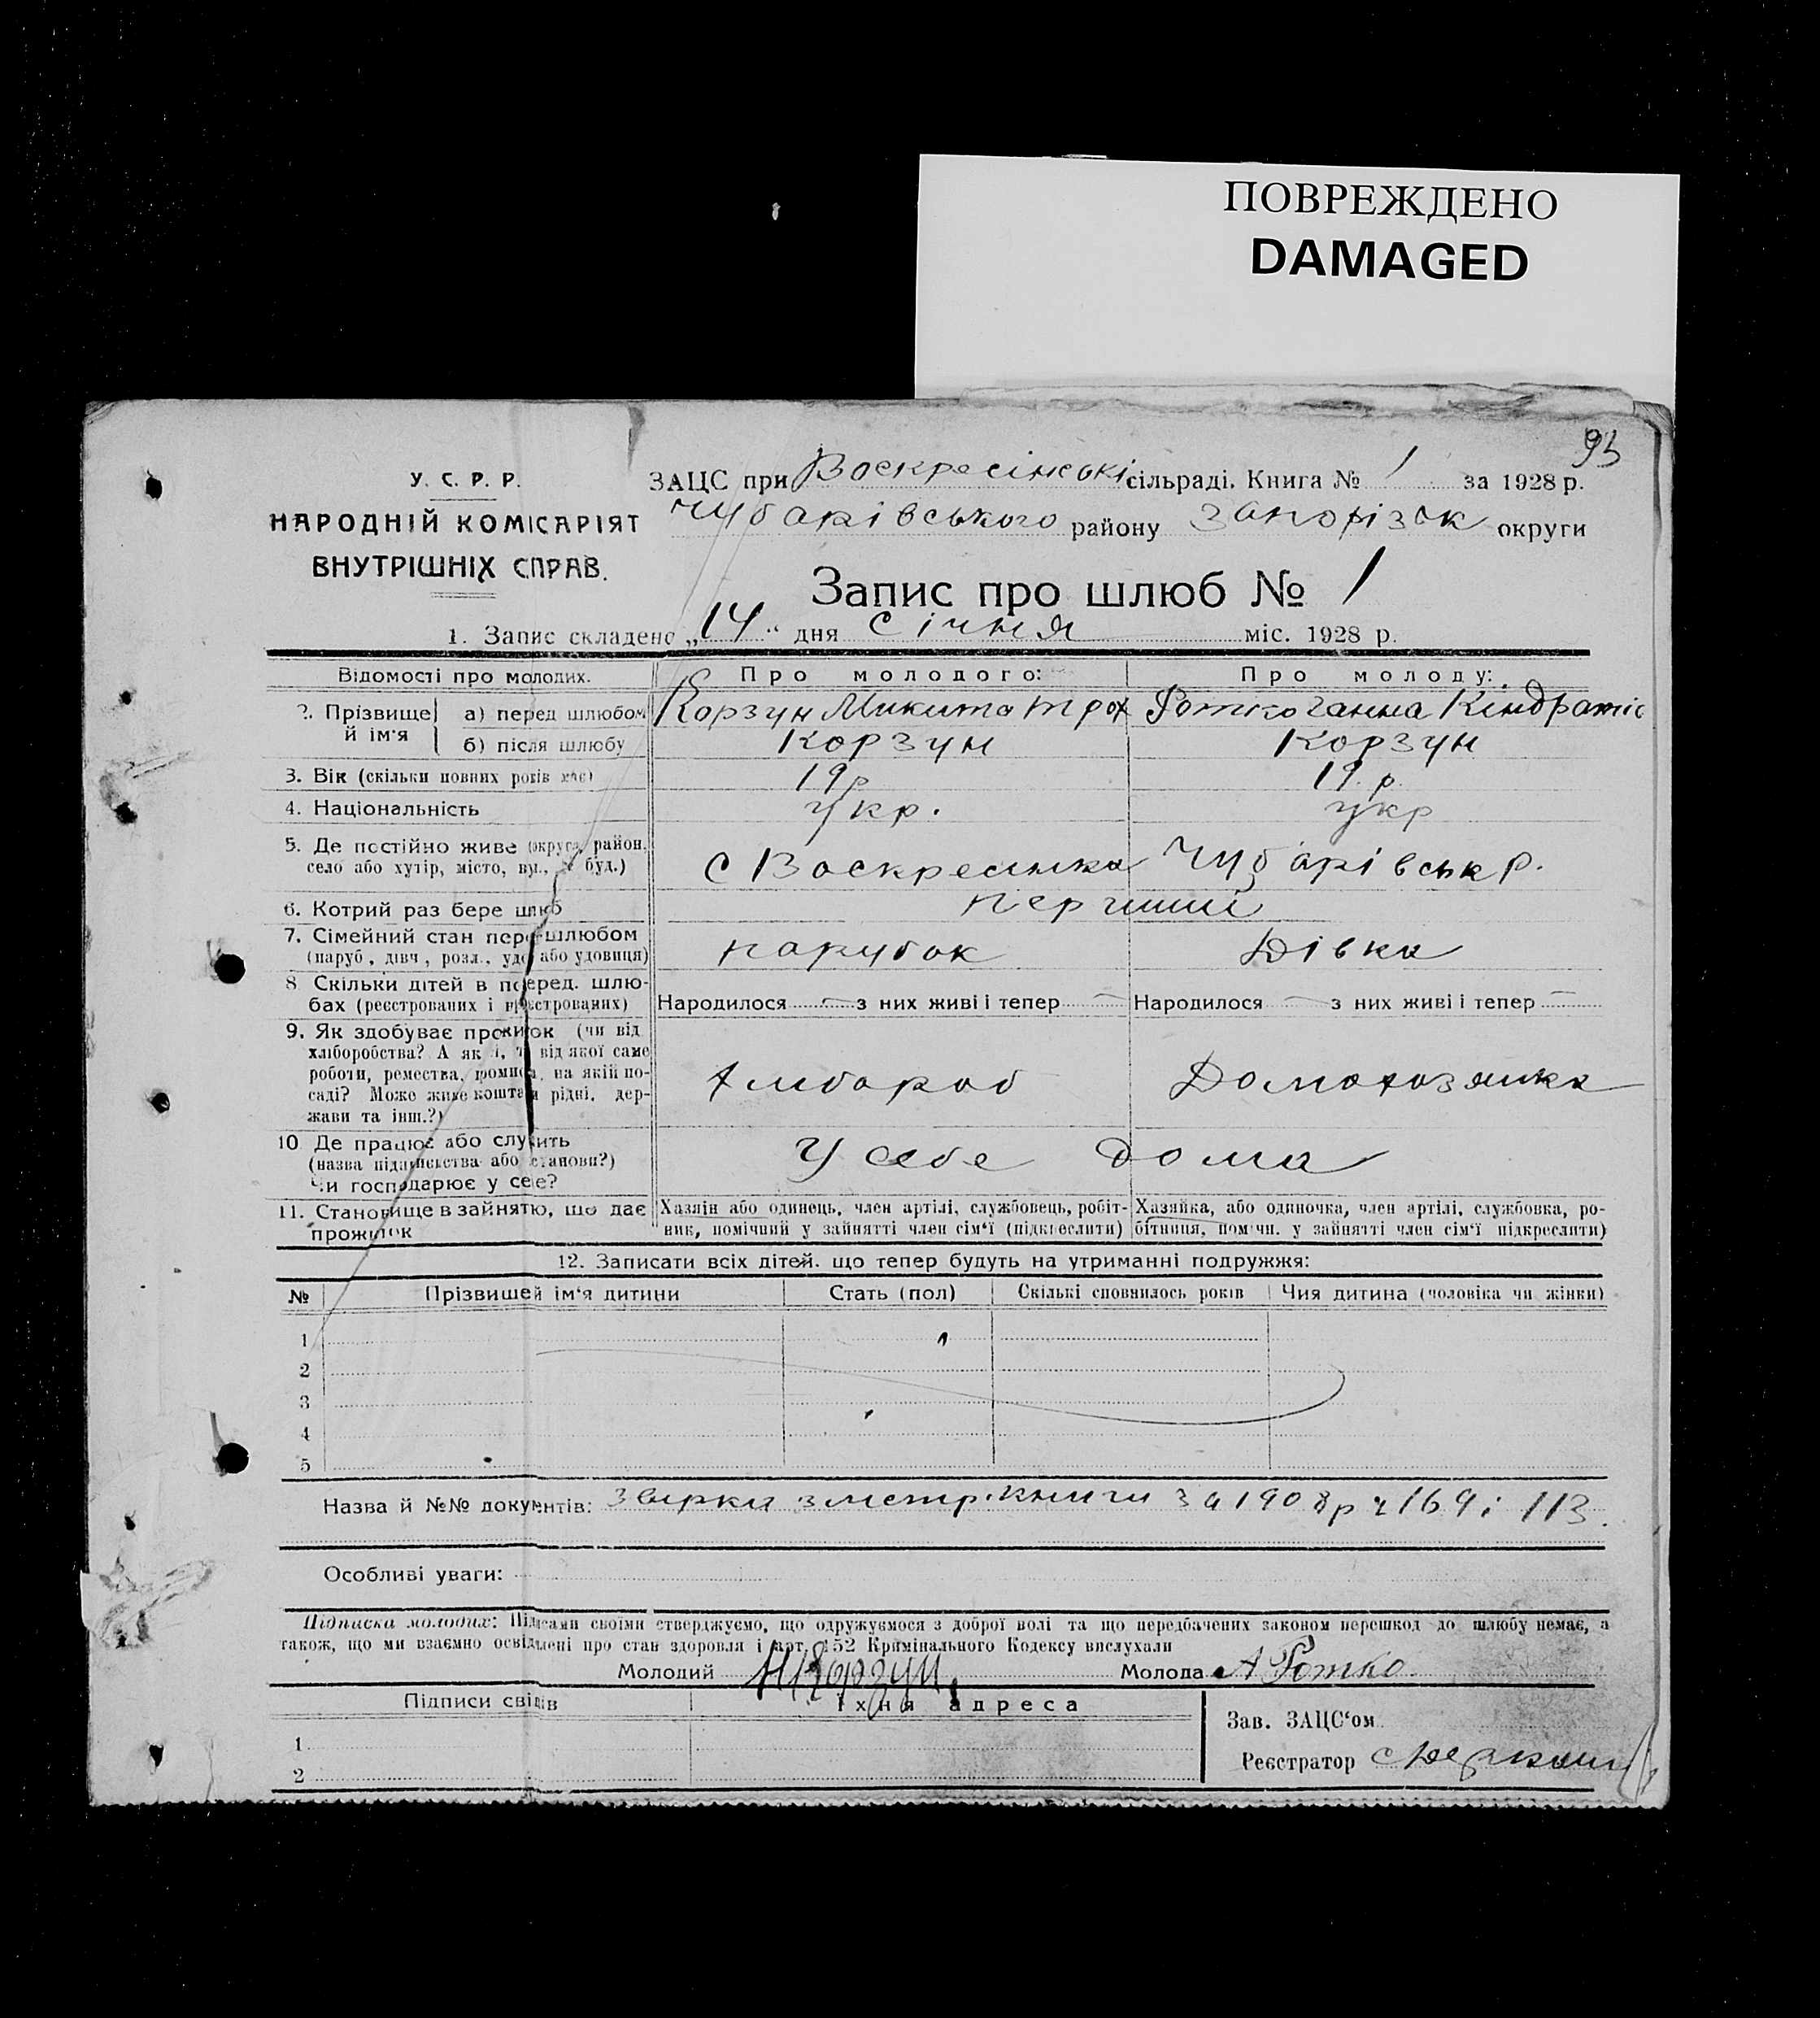 ПОВРЕЖДЕНО
DAMAGED
93
У. С. Р. Р.
НАРОДНІЙ КОМІСАРІЯТ
ВНУТРІШНІХ СПРАВ.
ЗАЦС при Воскресінські сільраді. Книга № 1 за 1928 р.
Чубарівського району Запоріза́к округи
Запис про шлюб № 1
1. Запис складено „14“ дня січня міс. 1928 р.
Відомості про молодих. Про молодого: Про молоду:
2. Прізвище й ім'я а) перед шлюбом Корзун Микита Трох Ротко Ганна Кіндратів
б) після шлюбу Корзун Корзун
3. Вік (скільки повних років має) 19 р 19. р.
4. Національність укр. укр
5. Де постійно живе (округа, район, село або хутір, місто, вул., № буд.) с Воскресинка Чубарівськ р.
6. Котрий раз бере шлюб перший
7. Сімейний стан перед шлюбом (паруб., дівч., розл., удов. або удовиця) парубок Дівка
8 Скільки дітей в поперед. шлюбах (реєстрованих і нереєстрованих) Народилося — з них живі і тепер — Народилося — з них живі і тепер —
9. Як здобуває прожиток (чи від
хліборобства? А як ні, то від якої саме
роботи, ремества, промисла, на якій по-
саді? Може живе коштами рідні, дер-
жави та інш.?) Хлибороб Домохозяика
10 Де працює або служить
(назва підприємства або установи?) У себе дома
Чи господарює у себе?
11. Становище в занятю, що дає прожиток
Хазяін або одинець, член артілі, службовець, робіт-
ник, помічний у зайнятті член сім'ї (підкреслити)
Хазяйка, або одиночка, член артілі, службовка, ро-
бітниця, помічн. у зайнятті член сім'ї підкреслити)
12. Записати всіх дітей. що тепер будуть на утриманні подружжя:
№ Прізвище й ім'я дитини Стать (пол) Скількі сповнилось років Чия дитина (чоловіка чи жінки)
1
2
3
4
5
Назва й №№ документів: Звирки з метр. книги за 1908 р ч 169 і 113.
Особливі уваги:
Підписка молодих: Підписами своїми стверджуємо, що одружуємося з доброї волі та що передбачених законом перешкод до шлюбу немає, а
також, що ми взаємно освідмлені про стан здоровля і арт. 152 Кримінального Кодексу вислухали
Молодий Н Корзун Молода А Ротко.
Підписи свідків їхня адреса
Зав. ЗАЦС'ом
1
Реєстратор
2